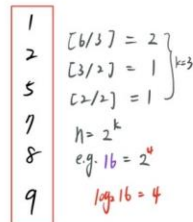 1
2
5
7
8
9
[6/3] = 2
[3/2] = 1
[2/2] = 1
k=3
n = 2^k
e.g. 16 = 2^4
log₂ 16 = 4